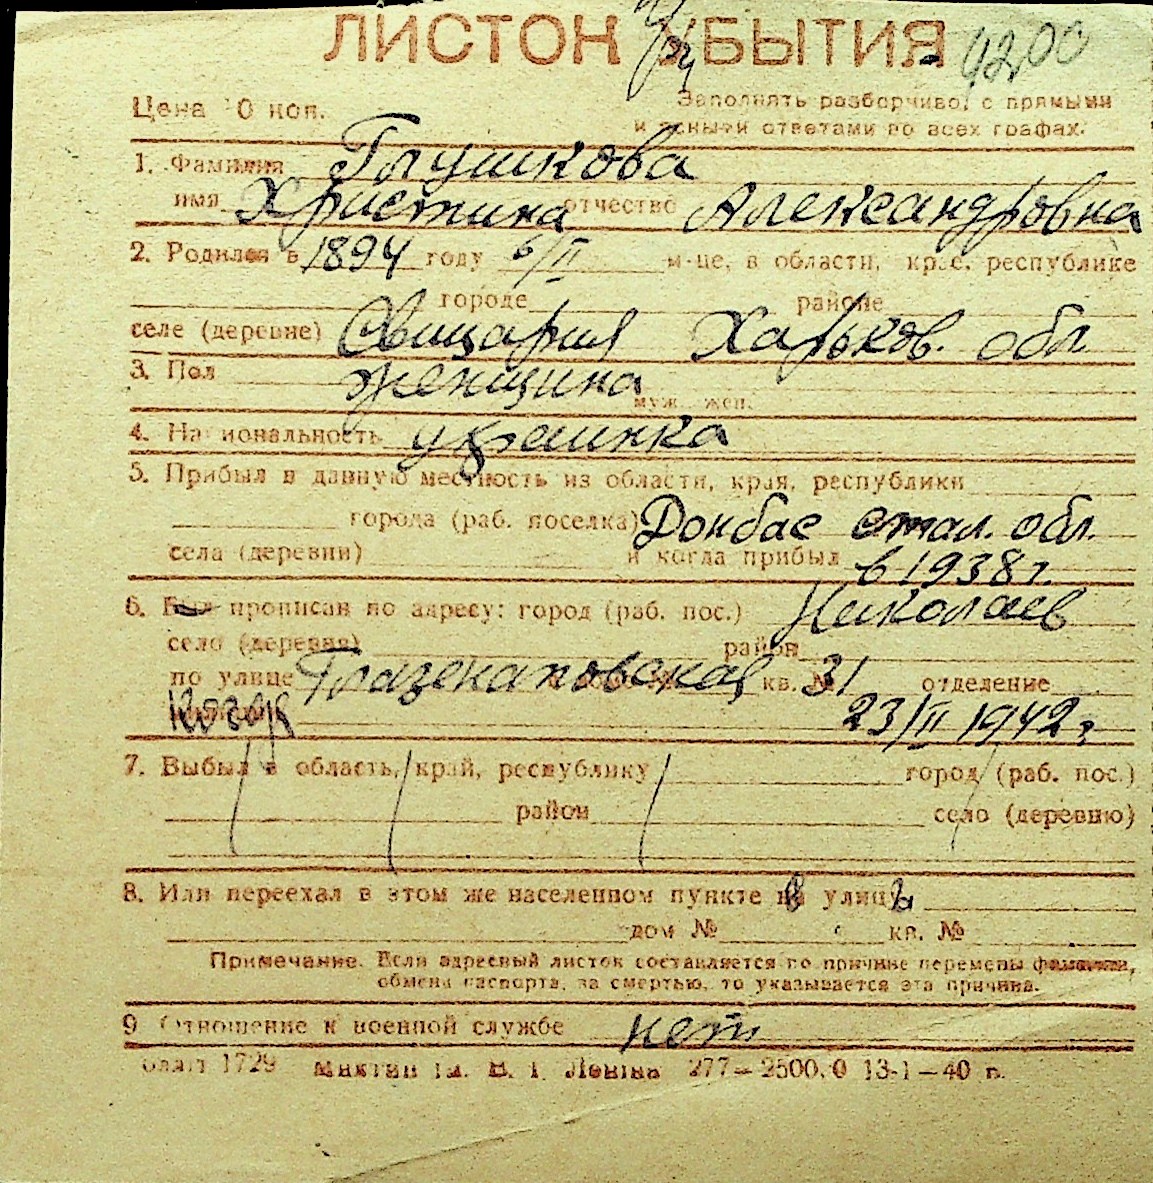 ЛИСТОК УБЫТИЯ 4200
Цена 10 коп. Заполнять разборчиво, с прямыми
и ясными ответами во всех графах.
1. Фамилия Глушкова
имя Христина отчество Александровна
2. Родился в 1894 году 6/II м-це, в области, крае, республике
городе районе
селе (деревне) Харьков. обл.
3. Пол женщина
муж. жен.
4. Национальность украинка
5. Прибыл в данную местность из области, края, республики
города (раб. поселка) Донбас стал. обл.
села (деревни) и когда прибыл в 1938 г.
6. Был прописан по адресу: город (раб. пос.) Николаев
село (деревня) район
по улице Глазенаповская кв. № 31 отделение
Когда 23/II 1942 г
7. Выбыл в область, край, республику город (раб. пос.)
район село (деревню)
8. Или переехал в этом же населенном пункте в улица
дом № кв. №
Примечание. Если адресный листок составляется по причине перемены фамилии,
обмена паспорта, за смертью, то указывается эта причина.
9 Отношение к военной службе нет
1729 277–2500.0 13-1–40 р.